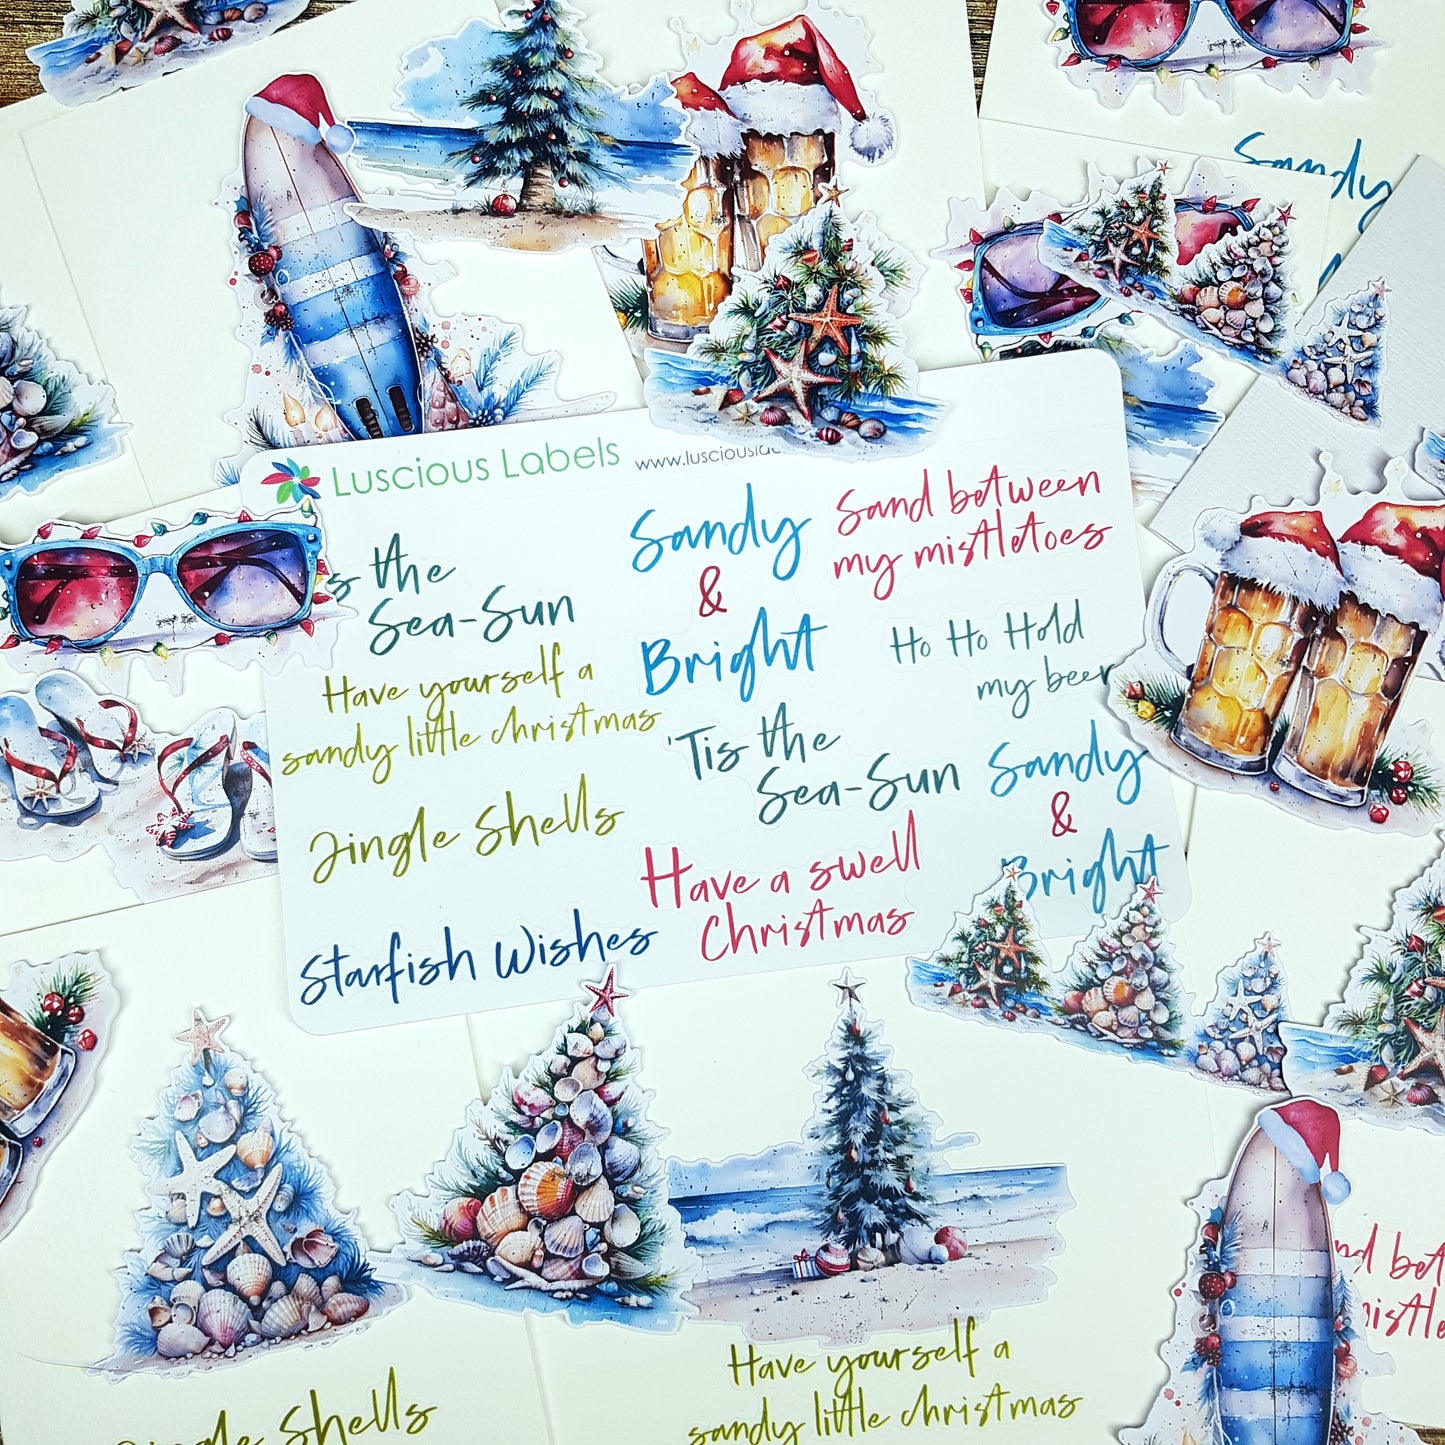 Sandy
Luscious Labels
the
Sea-Sun
Have yourself a
sandy little christmas
Jingle Shells
Starfish Wishes
Sandy
&
Bright
'Tis the
Sea-Sun
Have a swell
Christmas
Sand between
my mistletoes
Ho Ho Hold
my beer
Sandy
&
Bright
Jingle Shells
Have yourself a
sandy little christmas